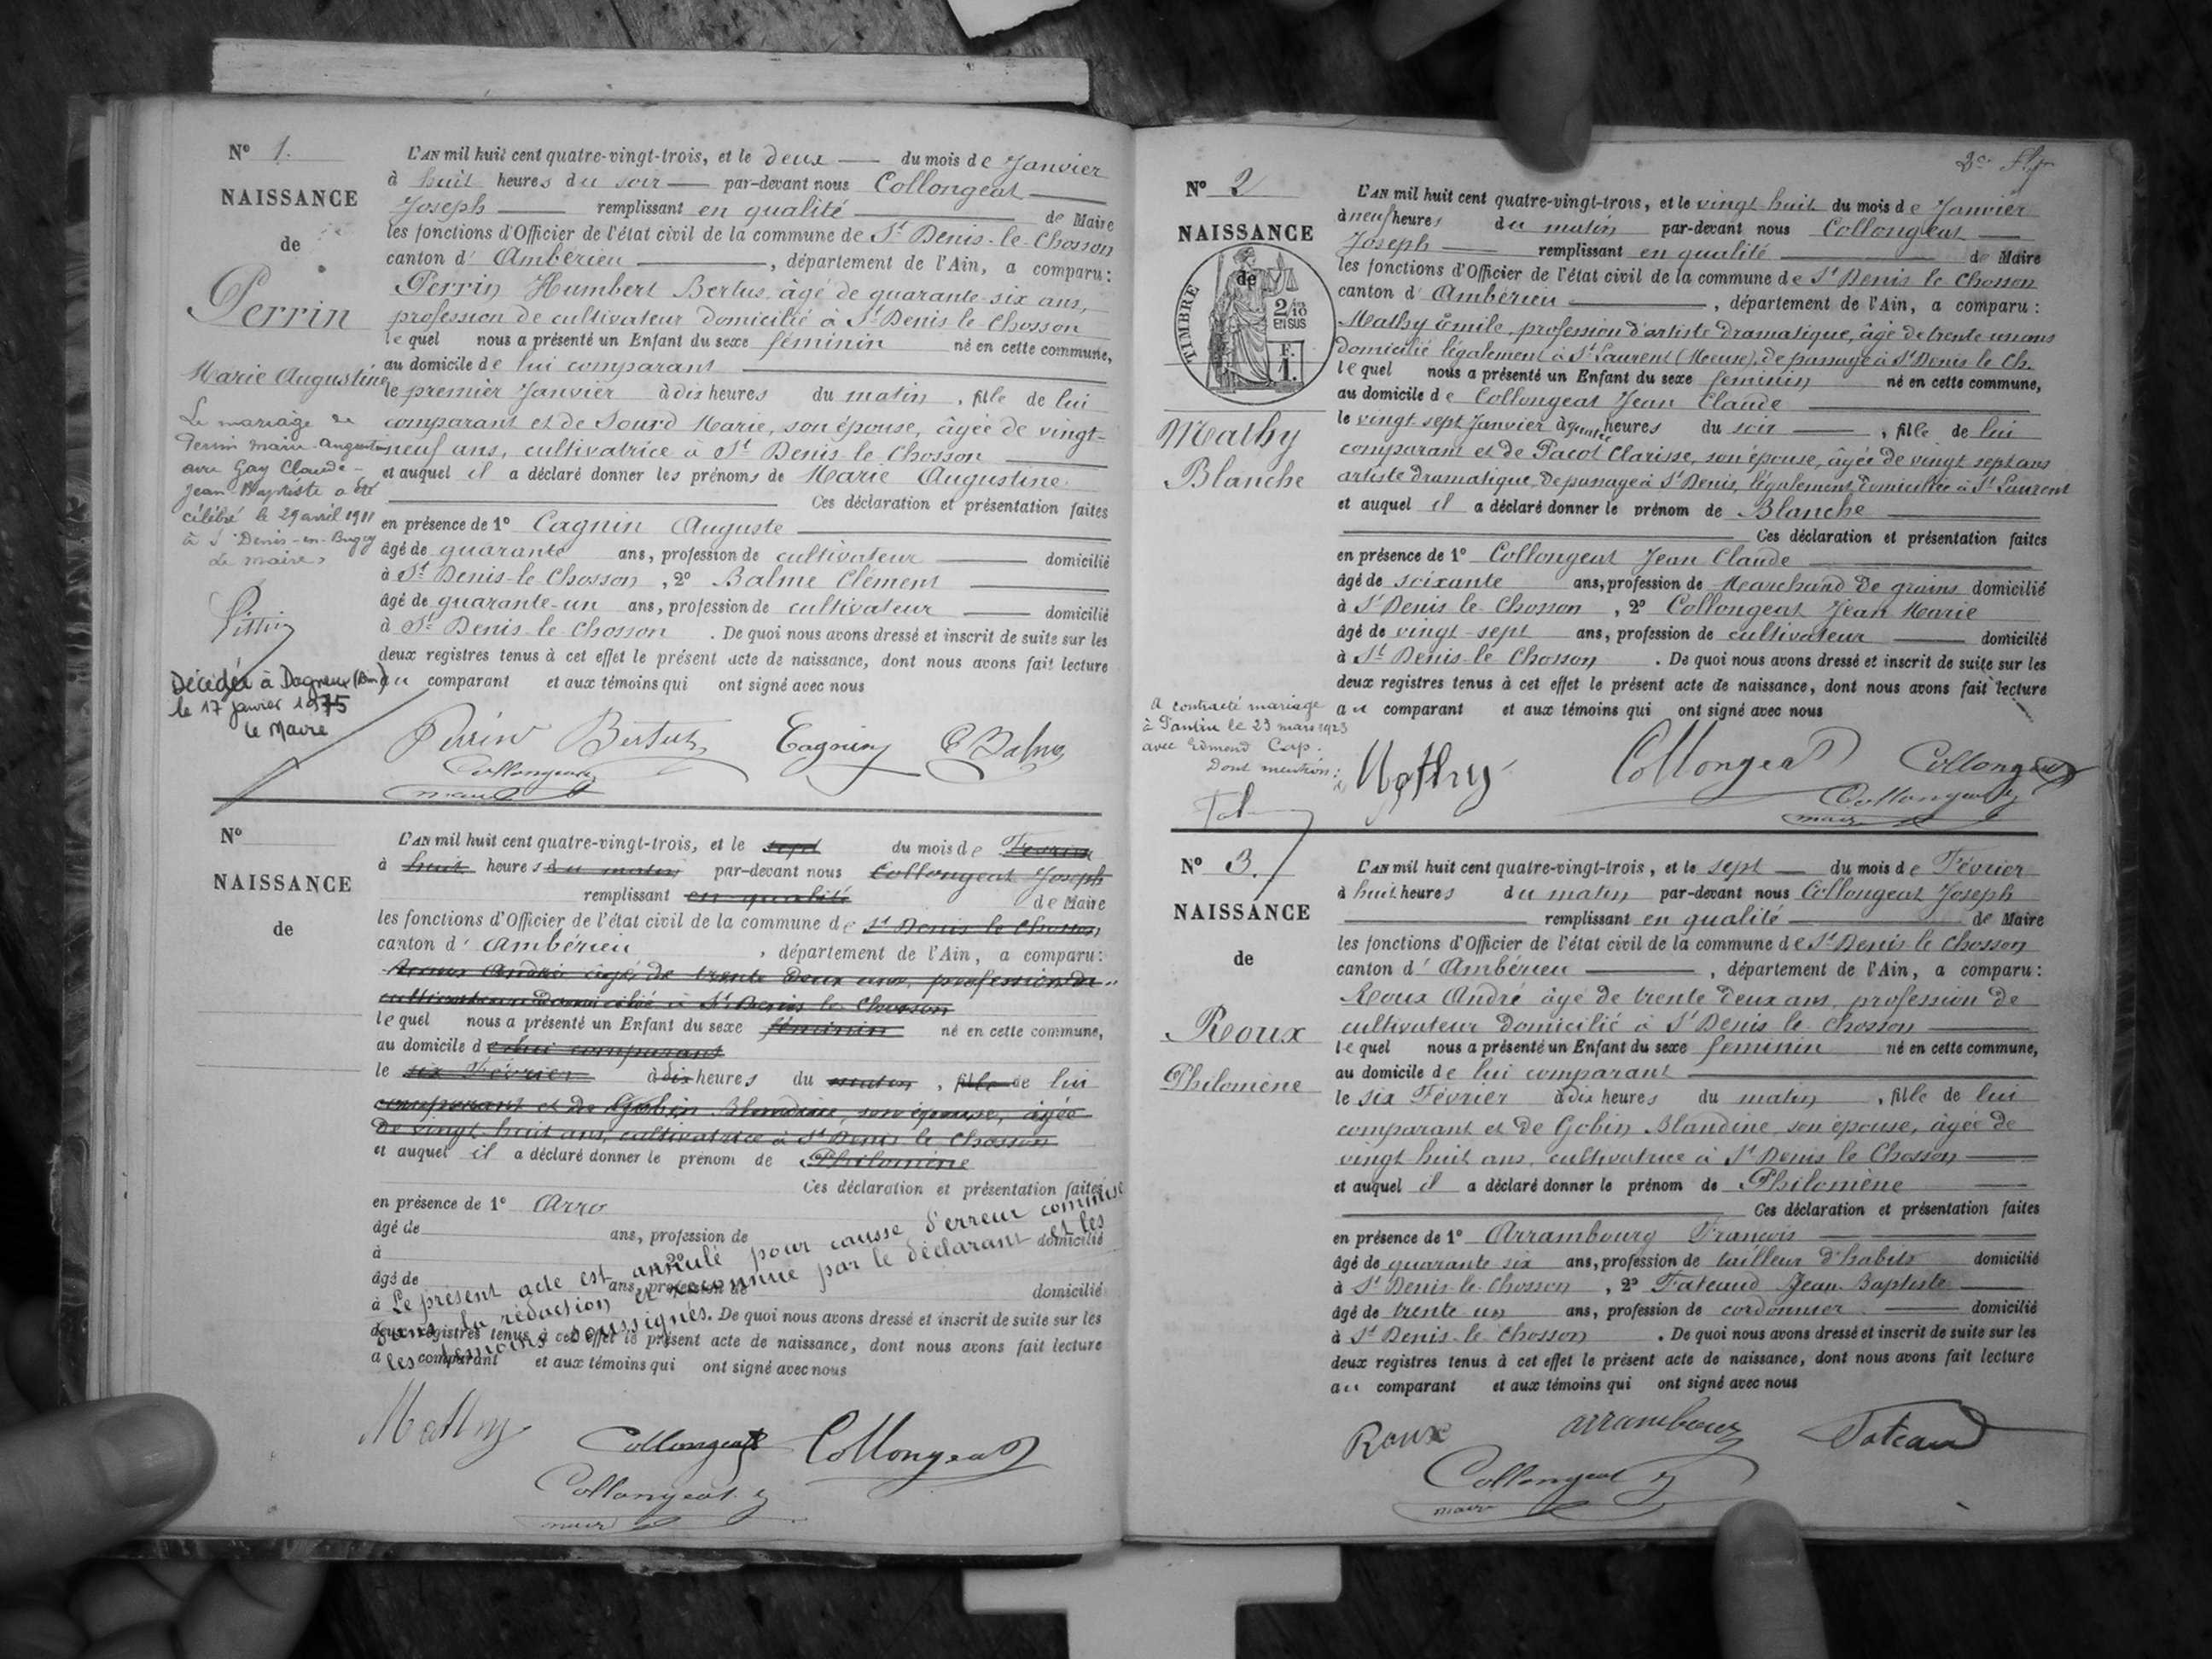 N° 1.
NAISSANCE
de
Perrin
Marie Augustine
Le mariage de
Perrin Marie-Augustine
avec Gay Claude-
Jean Baptiste a été
célébré le 29 avril 1911
à St Denis-en-Bugey
Le maire,
Décédée à Dagneux (Ain)
le 17 janvier 1975
Le Maire
L'AN mil huit cent quatre-vingt-trois, et le deux du mois de Janvier
à huit heures du soir par-devant nous Collongeat
Joseph remplissant en qualité de Maire
les fonctions d'Officier de l'état civil de la commune de St Denis-le-Chosson
canton d'Ambérieu, département de l'Ain, a comparu:
Perrin Humbert Bertus, âgé de quarante-six ans,
profession de cultivateur domicilié à St Denis le Chosson
lequel nous a présenté un Enfant du sexe féminin né en cette commune,
au domicile de lui comparant
le premier Janvier à dix heures du matin, fille de lui
comparant et de Sourd Marie, son épouse, âgée de vingt-
neuf ans, cultivatrice à St Denis le Chosson
et auquel il a déclaré donner les prénoms de Marie Augustine
Ces déclaration et présentation faites
en présence de 1° Cagnin Auguste
âgé de quarante ans, profession de cultivateur domicilié
à St Denis-le-Chosson, 2° Balme Clément
âgé de quarante-un ans, profession de cultivateur domicilié
à St Denis-le-Chosson. De quoi nous avons dressé et inscrit de suite sur les
deux registres tenus à cet effet le présent acte de naissance, dont nous avons fait lecture
au comparant et aux témoins qui ont signé avec nous
Perrin Bertus Cagnin C Balme
Collongeat
maire
N°
NAISSANCE
de
L'AN mil huit cent quatre-vingt-trois, et le sept du mois de Février
à huit heures du matin par-devant nous Collongeat Joseph
remplissant en qualité de Maire
les fonctions d'Officier de l'état civil de la commune de St Denis le Chosson
canton d'Ambérieu, département de l'Ain, a comparu:
Roux André âgé de trente deux ans, profession de
cultivateur domicilié à St Denis le Chosson
lequel nous a présenté un Enfant du sexe féminin né en cette commune,
au domicile de lui comparant
le six Février à dix heures du matin, fille de lui
comparant et de Gobin Blandine, son épouse, âgée
de vingt-huit ans, cultivatrice à St Denis le Chosson
et auquel il a déclaré donner le prénom de Philomène
Ces déclaration et présentation faites
en présence de 1° Arra
âgé de ans, profession de domicilié
à 2°
âgé de ans, profession de domicilié
à . De quoi nous avons dressé et inscrit de suite sur les
deux registres tenus à cet effet le présent acte de naissance, dont nous avons fait lecture
a comparant et aux témoins qui ont signé avec nous
Le présent acte est annulé pour causse d'erreur commise
dans la rédaction et reconnue par le déclarant et les
les témoins soussignés.
Mathy Collongeat Collongeat
Collongeat
maire
N° 2
NAISSANCE
de
TIMBRE
2/10
EN SUS
F.
1.
Mathy
Blanche
A contracté mariage
à Pantin le 23 mars 1923
avec Edmond Cap.
Dont mention:
L'AN mil huit cent quatre-vingt-trois, et le vingt-huit du mois de Janvier
à neuf heures du matin par-devant nous Collongeat
Joseph remplissant en qualité de Maire
les fonctions d'Officier de l'état civil de la commune de St Denis le Chosson
canton d'Ambérieu, département de l'Ain, a comparu:
Mathy Emile, profession d'artiste dramatique, âgé de trente un ans
domicilié légalement à St Laurent (Meuse), de passage à St Denis le Ch.
lequel nous a présenté un Enfant du sexe féminin né en cette commune,
au domicile de Collongeat Jean Claude
le vingt-sept Janvier à quatre heures du soir, fille de lui
comparant et de Pacot Clarisse, son épouse, âgée de vingt sept ans
artiste dramatique, de passage à St Denis, légalement domiciliée à St Laurent
et auquel il a déclaré donner le prénom de Blanche
Ces déclaration et présentation faites
en présence de 1° Collongeat Jean Claude
âgé de soixante ans, profession de Marchand de grains domicilié
à St Denis le Chosson, 2° Collongeat Jean Marie
âgé de vingt-sept ans, profession de cultivateur domicilié
à St Denis le Chosson. De quoi nous avons dressé et inscrit de suite sur les
deux registres tenus à cet effet le présent acte de naissance, dont nous avons fait lecture
au comparant et aux témoins qui ont signé avec nous
Mathy Collongeat Collongeat
Collongeat
maire
N° 3.
NAISSANCE
de
Roux
Philomène
L'AN mil huit cent quatre-vingt-trois, et le sept du mois de Février
à huit heures du matin par-devant nous Collongeat Joseph
remplissant en qualité de Maire
les fonctions d'Officier de l'état civil de la commune de St Denis le Chosson
canton d'Ambérieu, département de l'Ain, a comparu:
Roux André âgé de trente deux ans, profession de
cultivateur domicilié à St Denis le Chosson
lequel nous a présenté un Enfant du sexe féminin né en cette commune,
au domicile de lui comparant
le six Février à dix heures du matin, fille de lui
comparant et de Gobin Blandine, son épouse, âgée de
vingt-huit ans, cultivatrice à St Denis le Chosson
et auquel il a déclaré donner le prénom de Philomène
Ces déclaration et présentation faites
en présence de 1° Arrambourg François
âgé de quarante six ans, profession de tailleur d'habits domicilié
à St Denis-le-Chosson, 2° Fateaud Jean Baptiste
âgé de trente un ans, profession de cordonnier domicilié
à St Denis-le-Chosson. De quoi nous avons dressé et inscrit de suite sur les
deux registres tenus à cet effet le présent acte de naissance, dont nous avons fait lecture
au comparant et aux témoins qui ont signé avec nous
Roux arrambourg Fateaud
Collongeat
maire